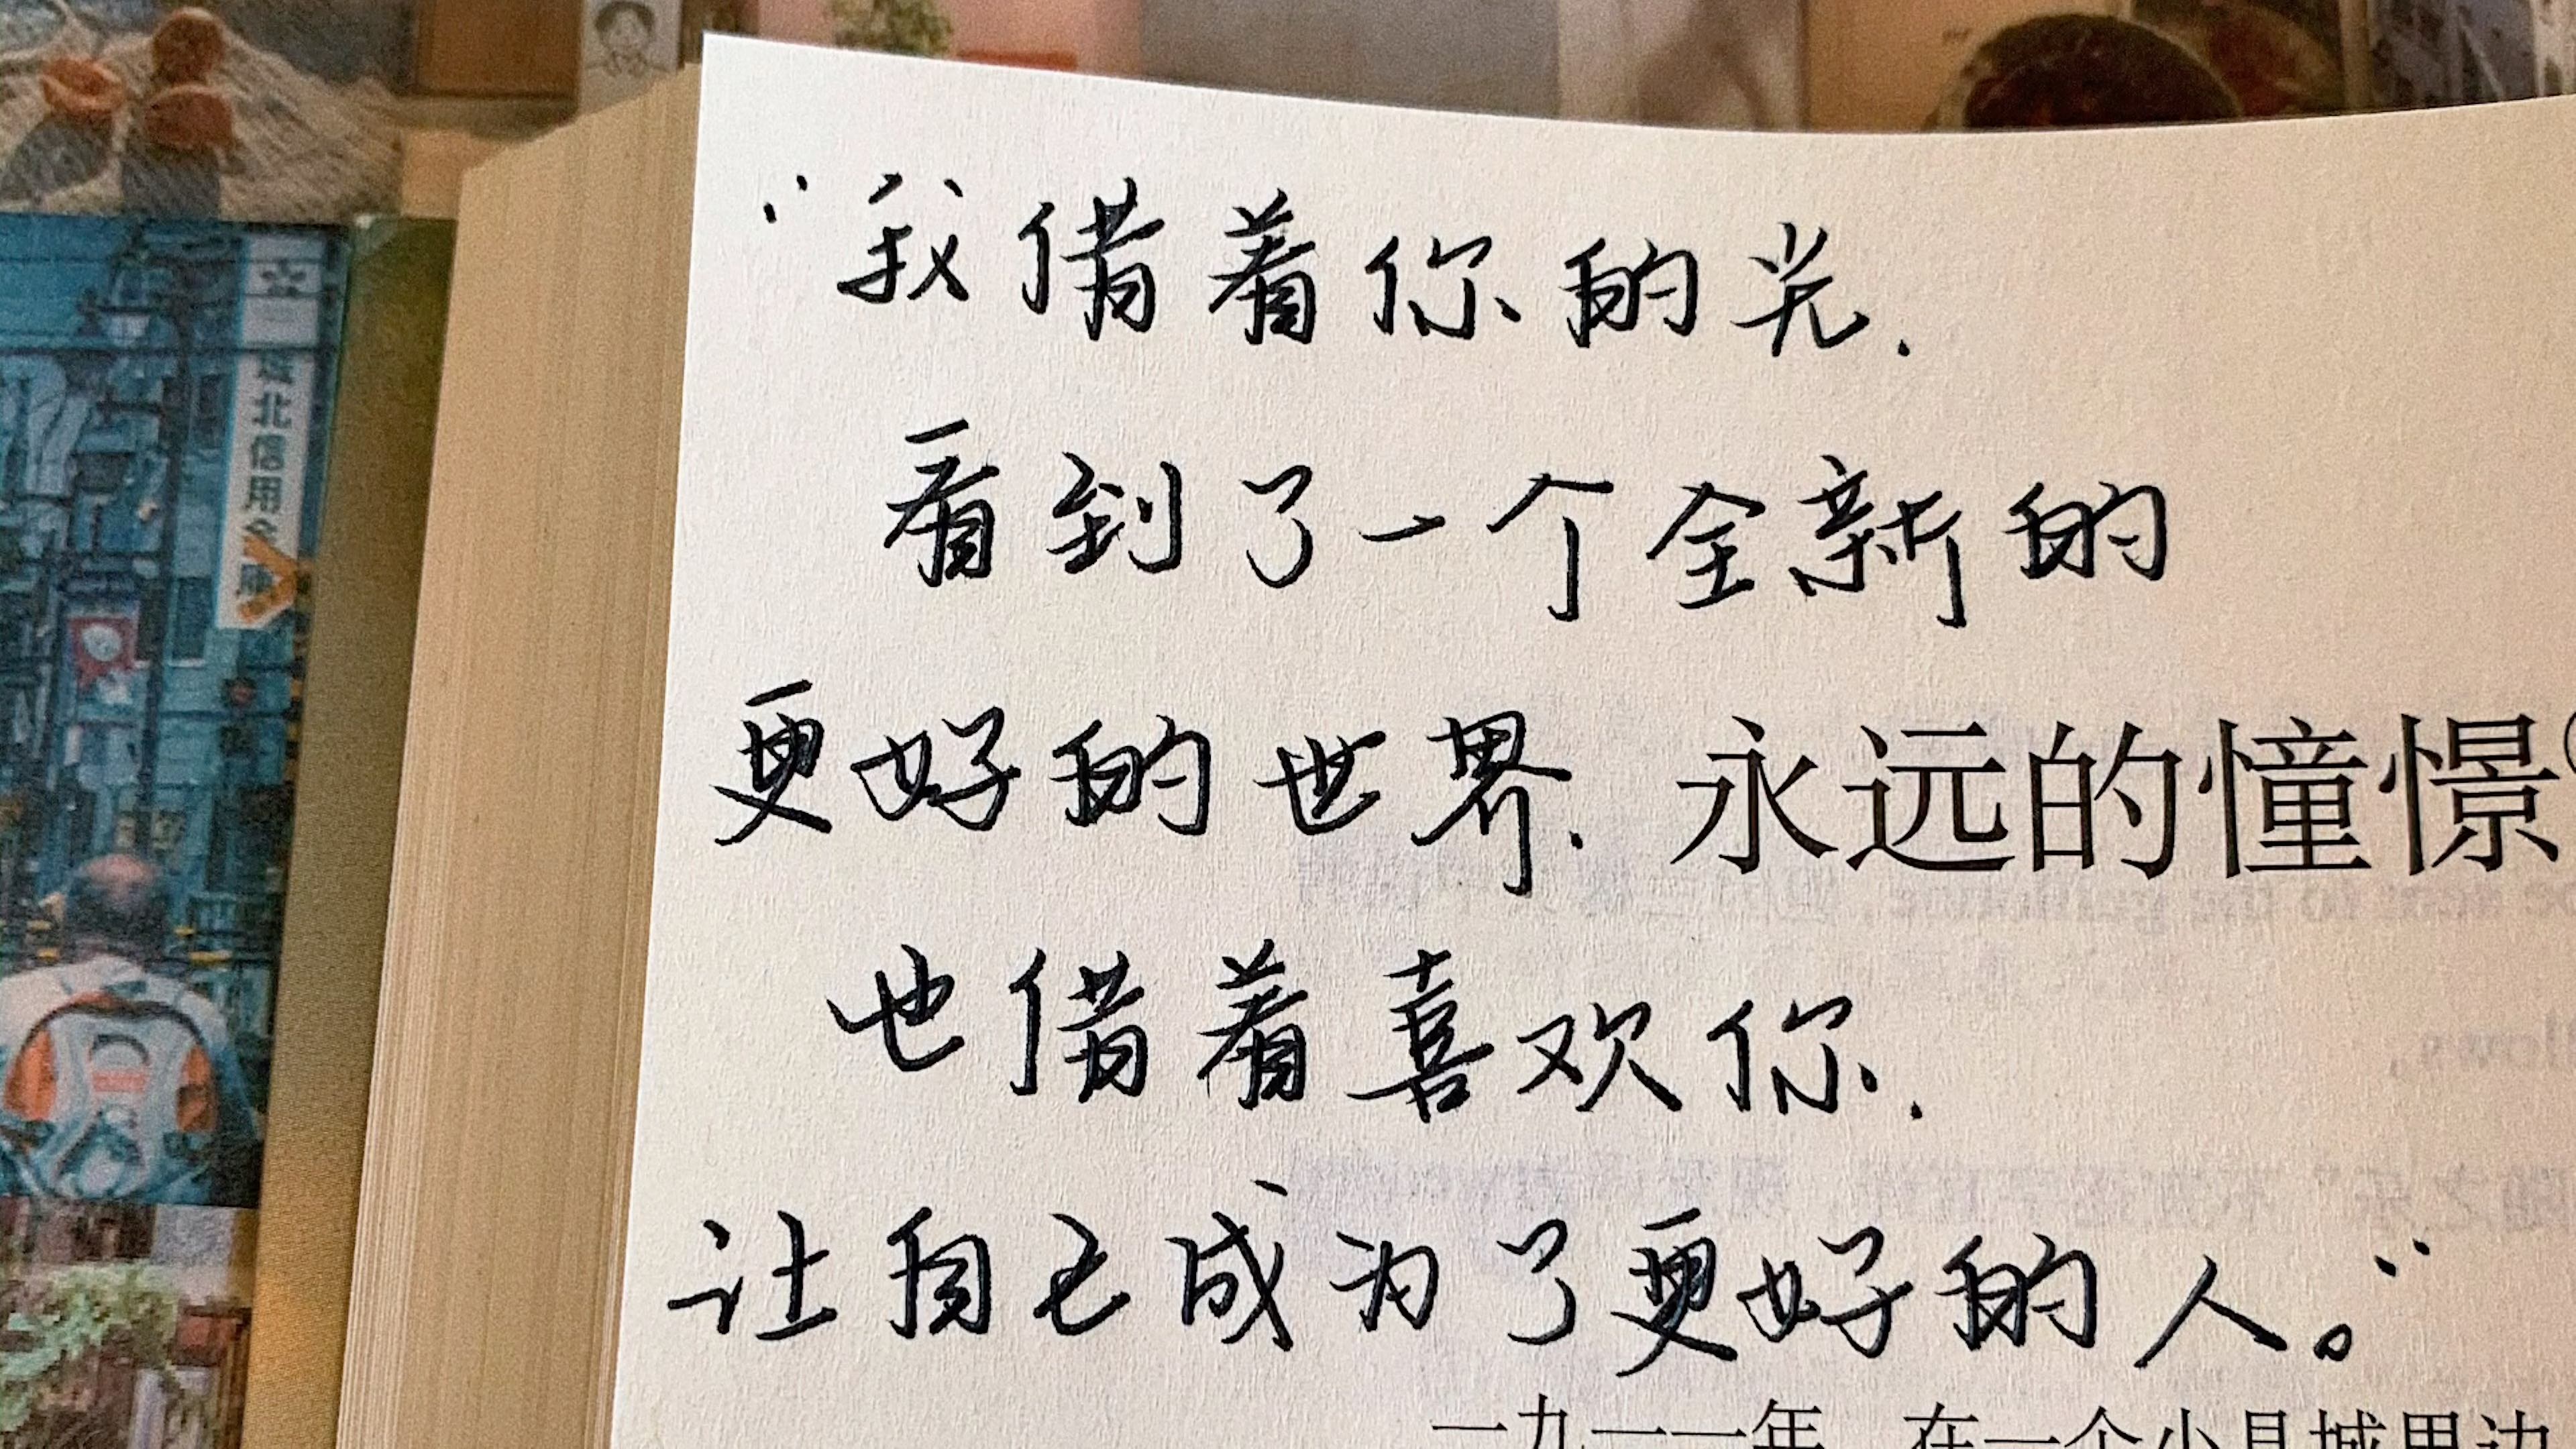 “我借着你的光.
看到了一个全新的
更好的世界.
永远的憧憬
也借着喜欢你.
让自己成为了更好的人。”
一九一一年 在一个小县城里边
北信用金庫